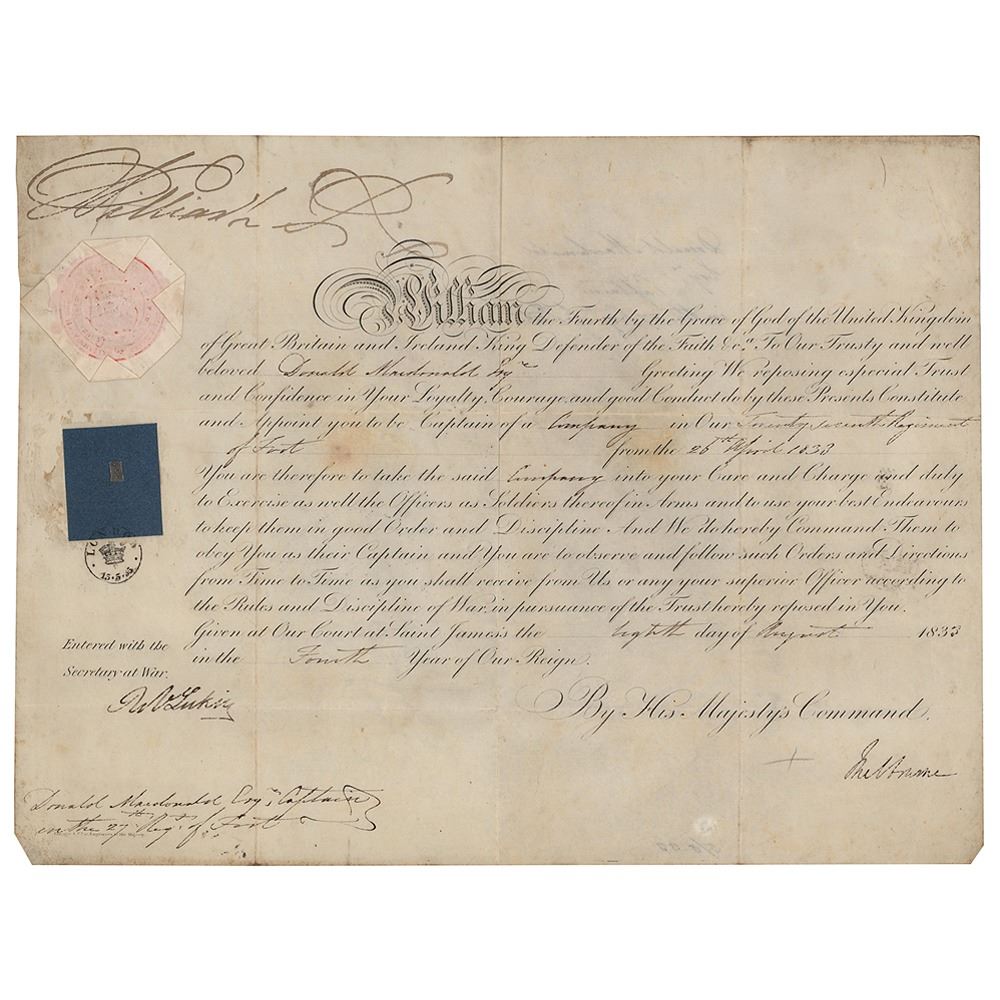 William R.
William the Fourth by the Grace of God of the United Kingdom
of Great Britain and Ireland King Defender of the Faith &c.a To Our Trusty and well
beloved Donald Macdonald Esqre Greeting We reposing especial Trust
and Confidence in Your Loyalty, Courage, and good Conduct do by these Presents Constitute
and Appoint you to be Captain of a Company in Our Twenty seventh Regiment
of Foot from the 26th April 1833
You are therefore to take the said Company into your Care and Charge and duty
to Exercise as well the Officers as Soldiers thereof in Arms and to use your best Endeavours
to keep them in good Order and Discipline And We do hereby Command Them to
obey You as their Captain and You are to observe and follow such Orders and Directions
from Time to Time as you shall receive from Us or any your superior Officer according to
the Rules and Discipline of War, in pursuance of the Trust hereby reposed in You.
Given at Our Court at Saint James's the Eighth day of August 1833
in the Fourth Year of Our Reign.
By His Majesty's Command.
Melbourne
13·5·33
Entered with the
Secretary at War.
Donald Macdonald Esqr Captain
in the 27th Regt of Foot